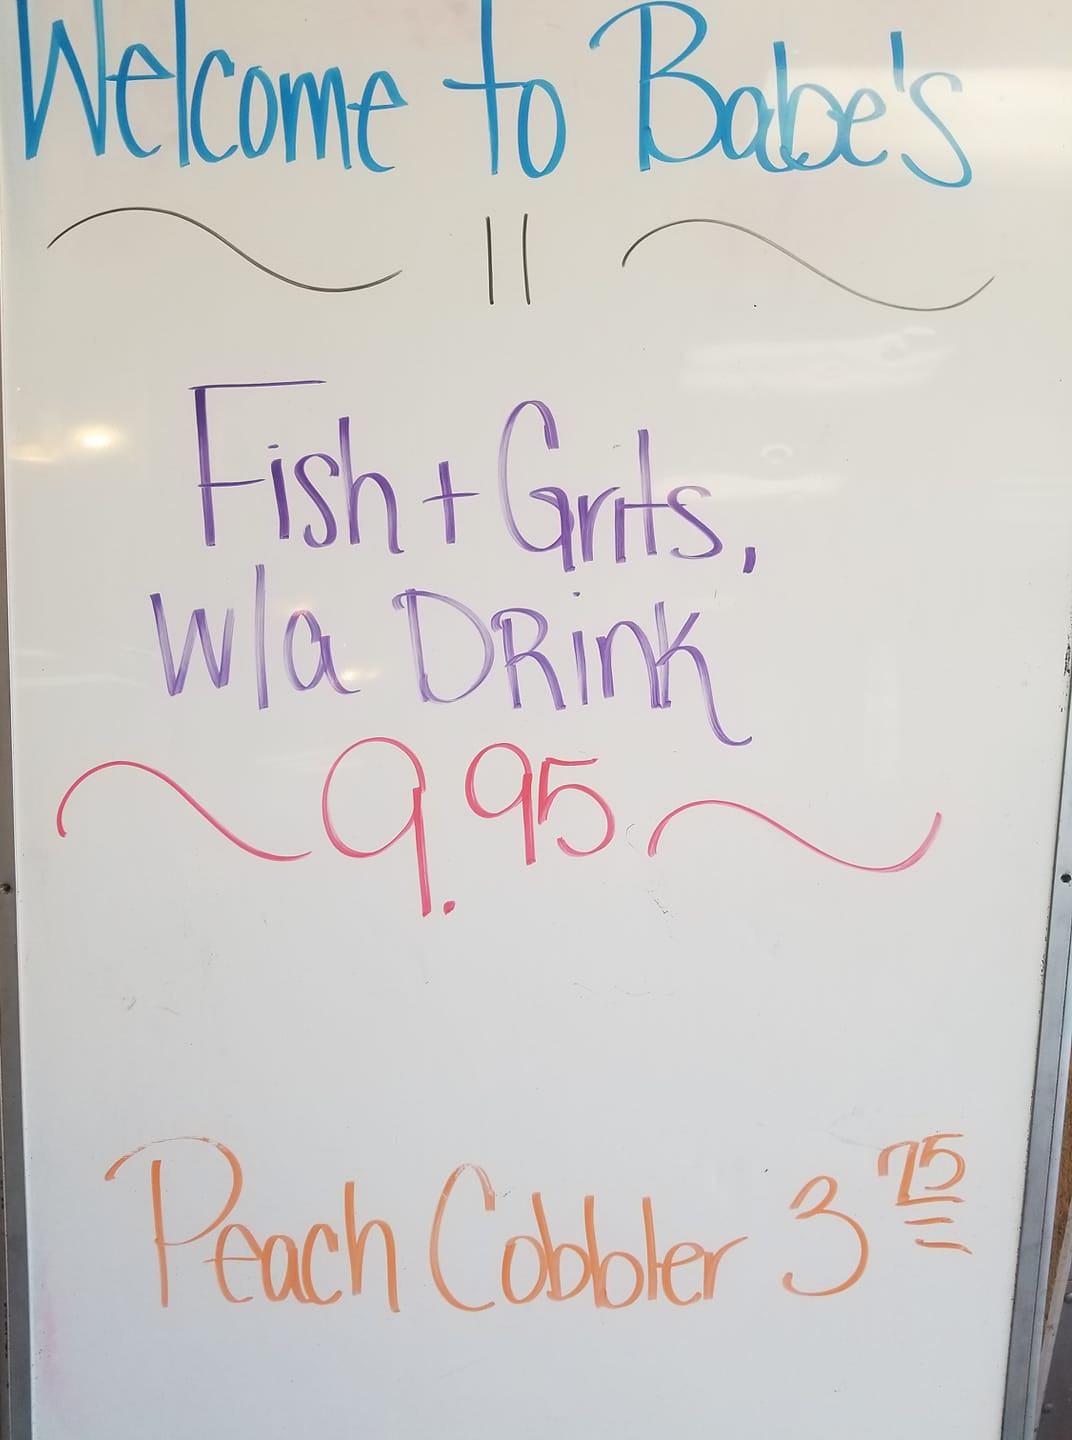 Welcome to Babe's
Fish + Grits,
w/a DRink
9.95
Peach Cobbler 3 75